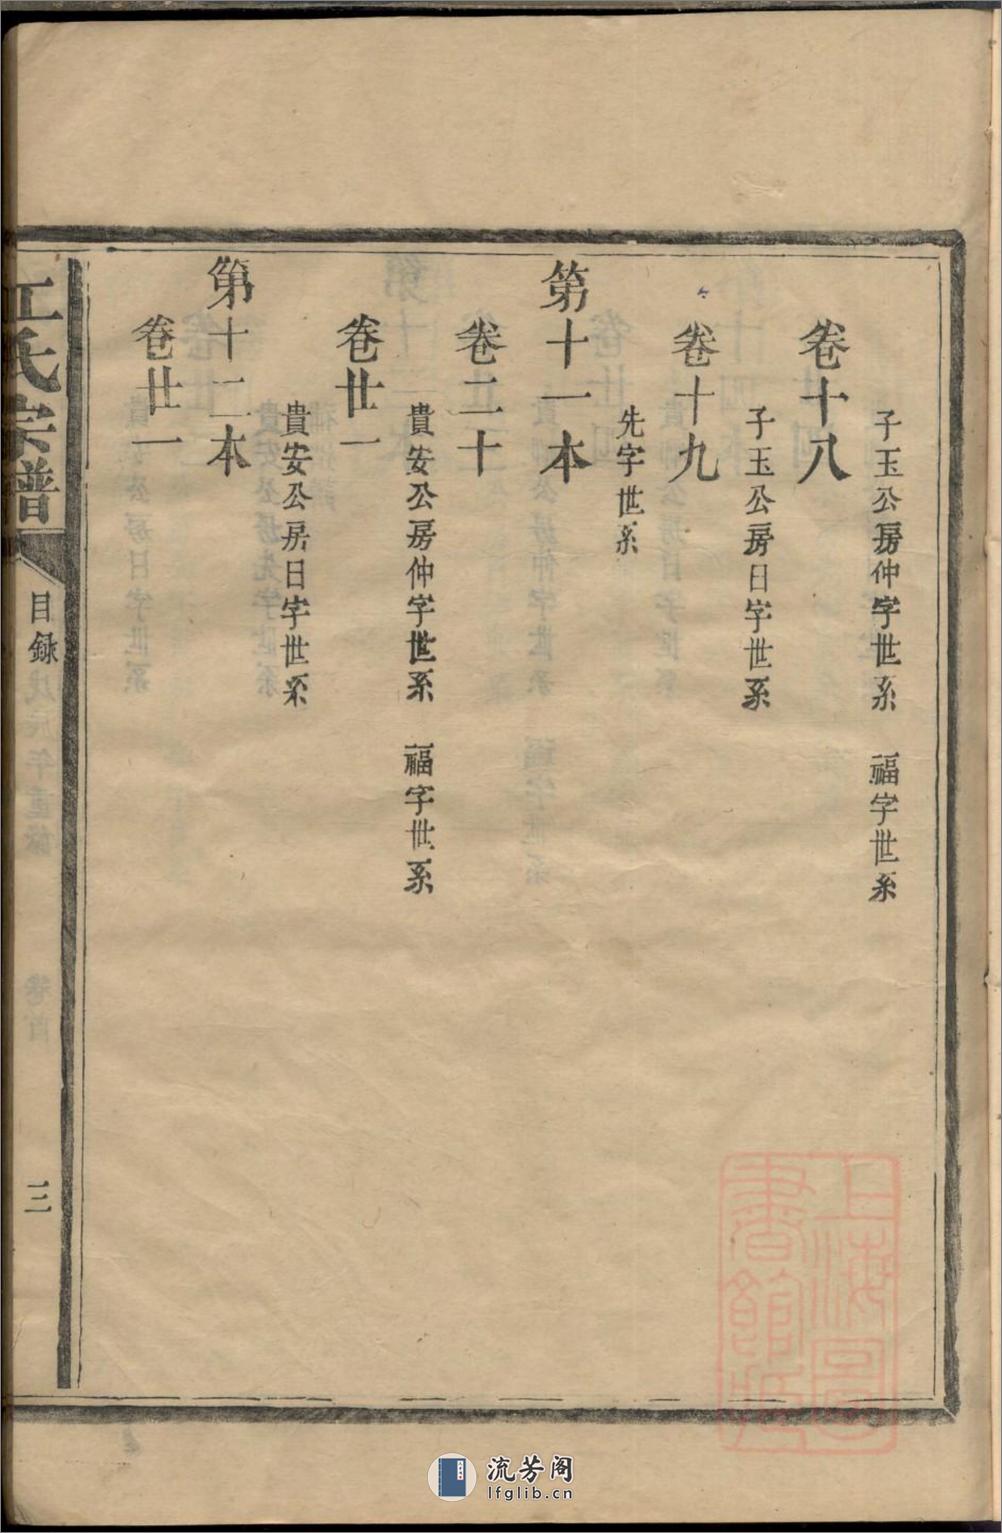 子玉公房仲字世系 福字世系
卷十八
子玉公房日字世系
卷十九
先字世系
第十一本
卷二十
貴安公房仲字世系 福字世系
卷廿一
貴安公房日字世系
第十二本
卷廿一
江氏宗譜
目錄
三
上海圖書館藏
流芳阁
lfglib.cn